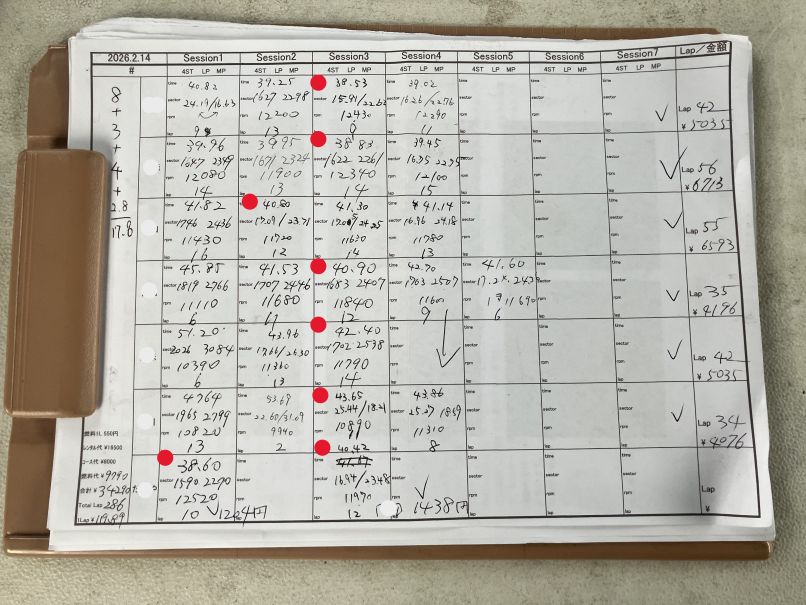 2026.2.14 Session1 Session2 Session3 Session4 Session5 Session6 Session7 Lap／金額
# 4ST LP MP 4ST LP MP 4ST LP MP 4ST LP MP 4ST LP MP 4ST LP MP 4ST LP MP
8
+
3
+
4
+
2.8
17.8
time 40.82 time 39.25 time 38.53 time 39.02 time time time
sector 24.19/16.63 sector 1627 2298 sector 15.91/22.62 sector 16.26/22.76 sector sector sector
rpm rpm 12200 rpm 12430 rpm 12290 rpm rpm rpm ✓
lap 9 lap 13 lap 9 lap 11 lap lap lap
Lap 42
¥5035
time 39.96 time 39.95 time 38.83 time 39.45 time time time
sector 1647 2349 sector 1671 2324 sector 1622 2261 sector 16.75 sector sector sector
rpm 12080 rpm 11900 rpm 12340 rpm 12100 rpm rpm rpm ✓
lap 14 lap 13 lap 14 lap 15 lap lap lap
Lap 56
¥6713
time 41.82 time 40.80 time 41.30 time 41.14 time time time
sector 1746 2436 sector 17.09/23.71 sector sector 16.96 24.18 sector sector sector
rpm 11430 rpm 11720 rpm 11630 rpm 11780 rpm rpm rpm ✓
lap 16 lap 12 lap 14 lap 13 lap lap lap
Lap 55
¥6593
time 45.85 time 41.53 time 40.90 time 42.70 time 41.60 time time
sector 1819 2766 sector 1707 2446 sector 1683 2407 sector 1763 2507 sector 17.2 sector sector
rpm 11110 rpm 11680 rpm 11840 rpm 11600 rpm 11690 rpm rpm ✓
lap 6 lap lap 12 lap 9 lap 6 lap lap
Lap 35
¥4196
time 51.20 time 43.96 time 42.40 time time time time
sector 2026 3084 sector 17.66/26.30 sector 1702 2538 sector sector sector sector
rpm 10390 rpm 11360 rpm 11790 rpm rpm rpm rpm ✓
lap 6 lap 13 lap 14 lap lap lap lap
Lap 42
¥5035
time 4764 time 53.69 time 43.65 time 43.86 time time time
sector 1965 2799 sector 22.60/31.09 sector 25.44/18.21 sector 25.27 18.59 sector sector sector
rpm 10820 rpm 9940 rpm 10890 rpm 11310 rpm rpm rpm ✓
lap 13 lap 2 lap lap 8 lap lap lap
Lap 34
¥4076
time 38.60 time time 40.42 time time time time
sector 1590 2270 sector sector 16.94/23.48 sector ✓ sector sector sector
rpm 12520 rpm rpm 11970 rpm rpm rpm rpm
lap 10 ✓ 1204円 lap lap 12 lap 1438円 lap lap lap
Lap
¥
燃料1L 550円
レンタル代 ¥16500
コース代 ¥8000
燃料代 ¥9790
合計 ¥34290
Total Lap 286
1Lap ¥119.89